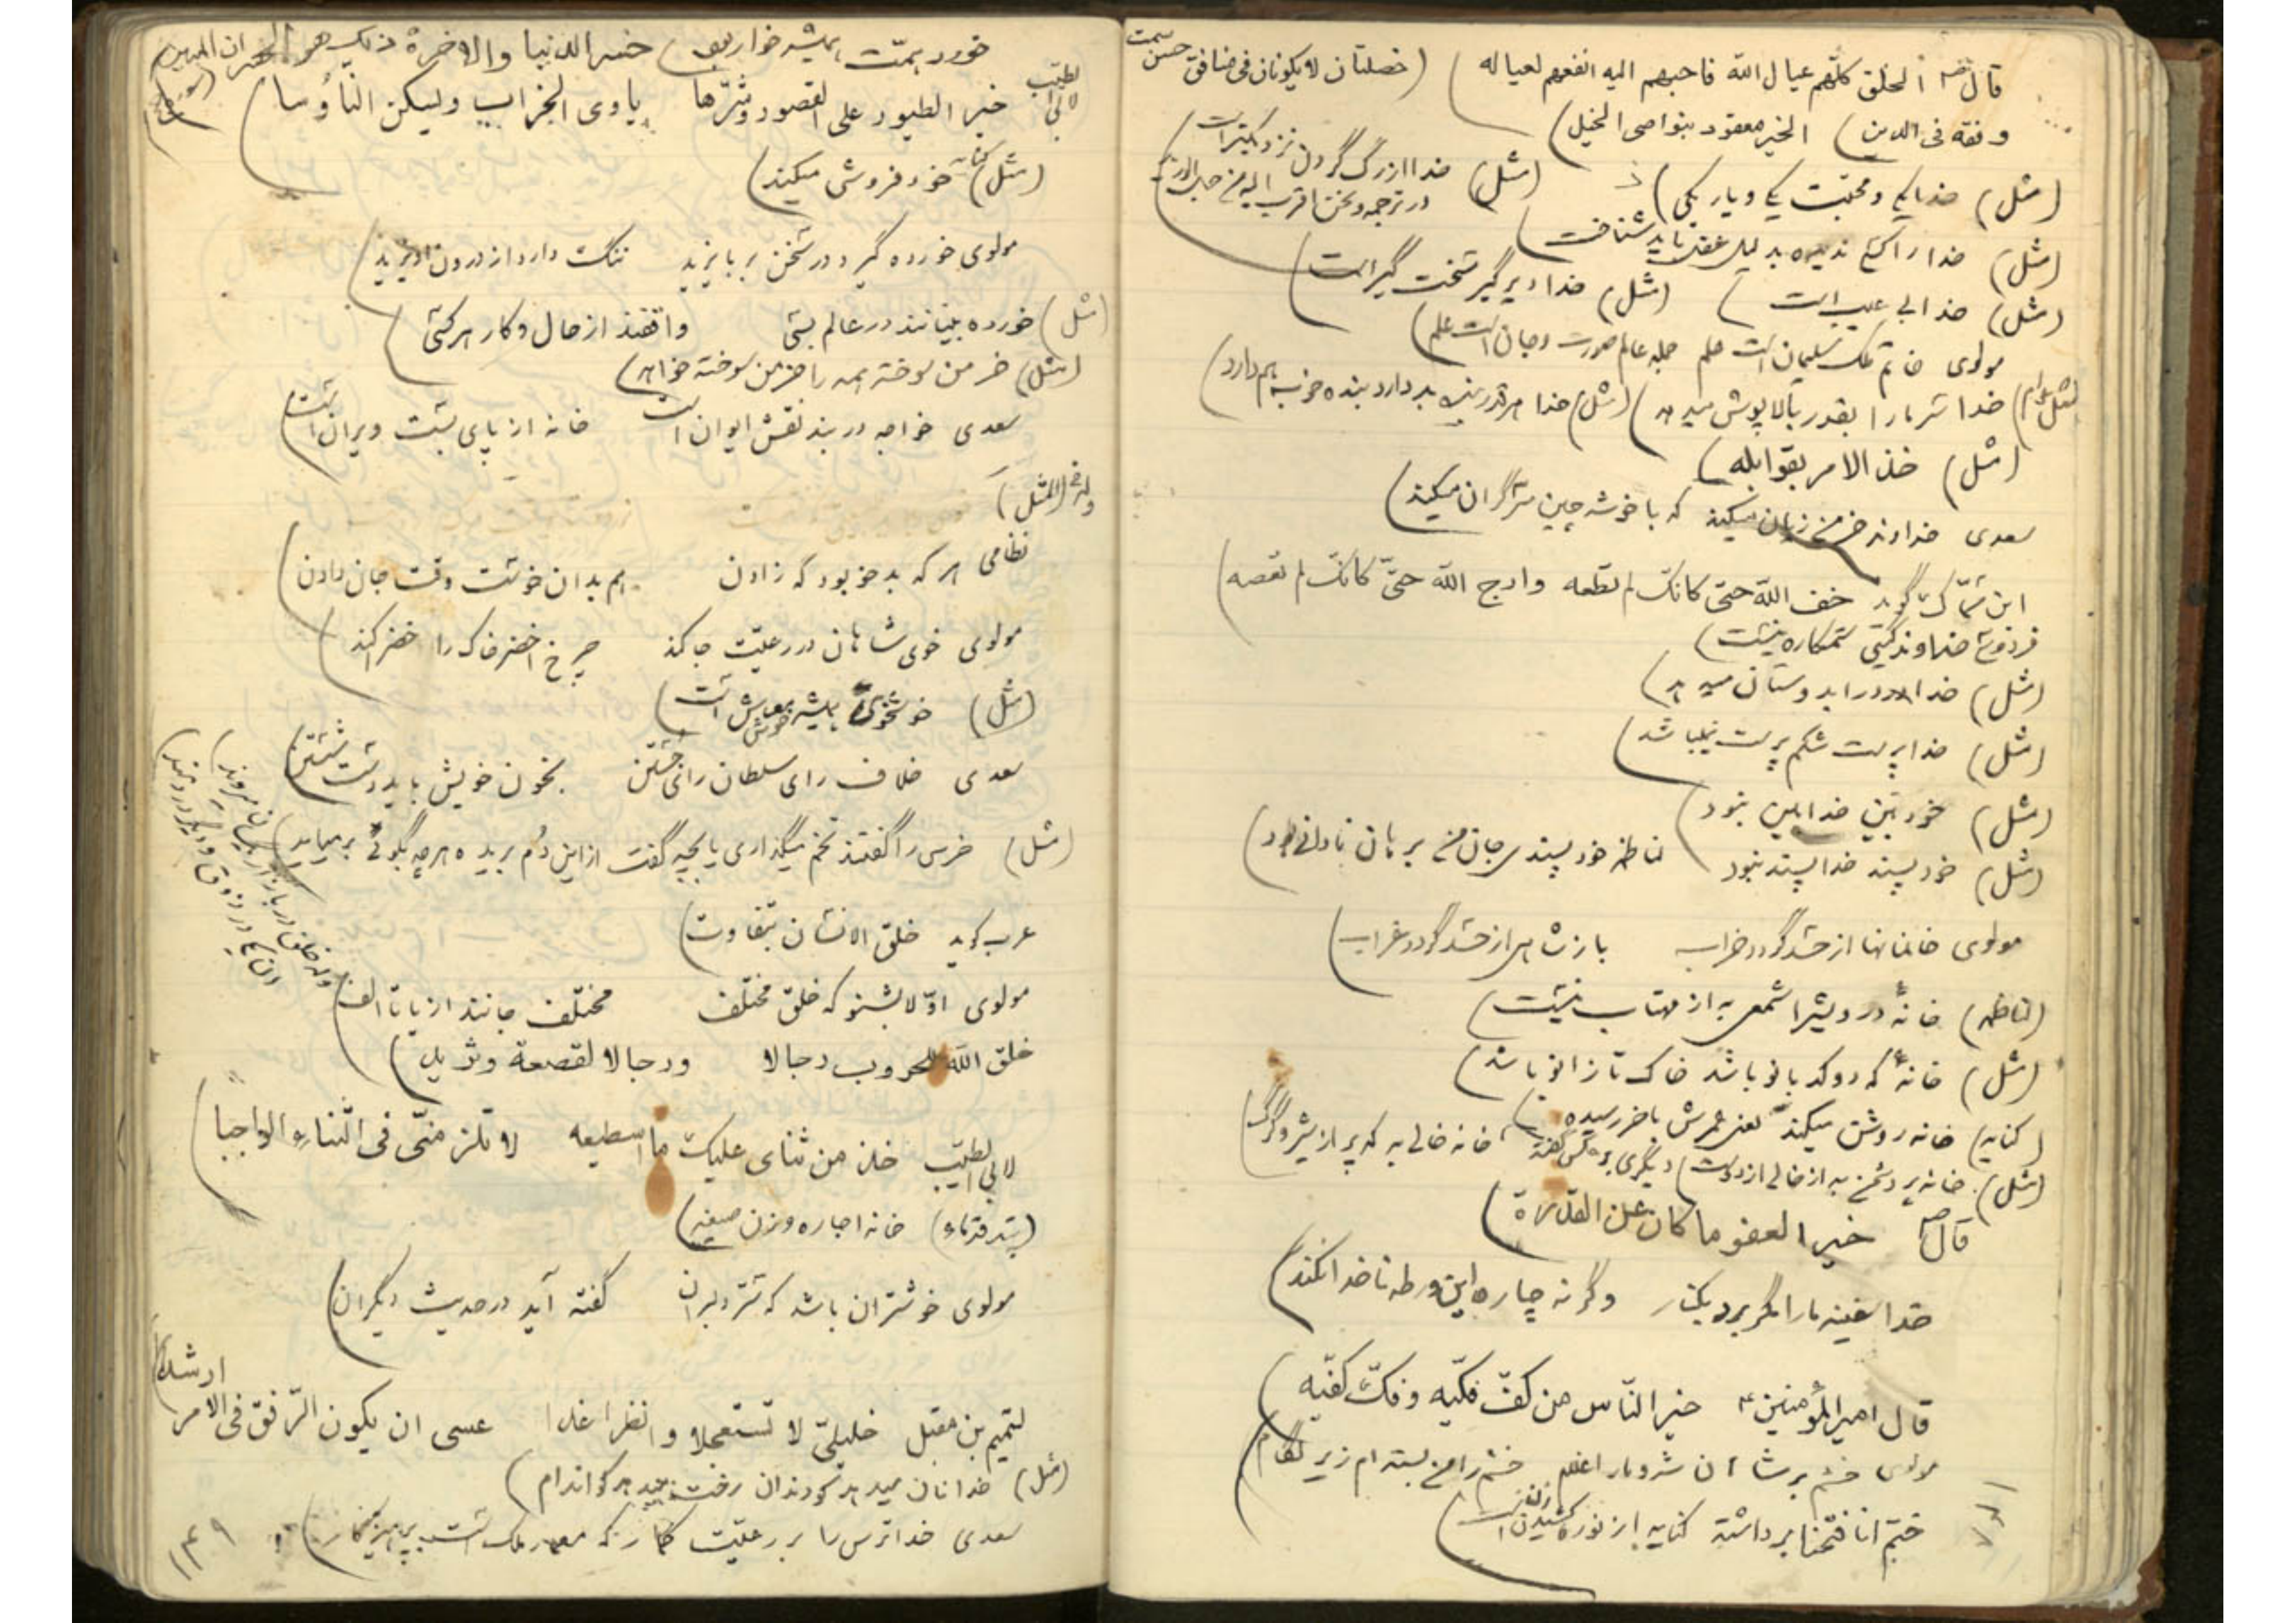 قال ص الخلق کلّهم عیال الله فاحبهم الیه انفعهم لعیاله ) (خصلتان لا یکونان فی منافق حسن سمت
وفقه فی الدین ) الخیر معقود بنواصی الخیل )
(مثل) خدا یکی و محبّت یکی و یار یکی ) (مثل) خدا از رگ گردن نزدیکتر است
در ترجمه و نحن اقرب الیه من حبل الورید
(مثل) خدا را کسی ندیده بدلیل عقل باید شناخت )
(مثل) خدا بی عیب است ) (مثل) خدا دیر گیر سخت گیر است )
مولوی خاتم ملک سلیمان است علم جمله عالم صورت و جان است علم )
(مثل) خدا سرما را بقدر بالاپوش میدهد ) (مثل) خدا هرقدر بنده بد دارد بنده خوب هم دارد )
(مثل) خذ الامر بقوابله )
سعدی خداوند خرمن زیان میکند که با خوشه چین سر گران میکند )
ابن سمّاک گوید خف الله حتی کانّک لم تطعه وارج الله حتّی کانّک لم تعصه )
فردوسی خداوند گیتی ستمکاره نیست )
(مثل) خدا درد را بدوستان میدهد )
(مثل) خداپرست شکم پرست نمیباشد )
(مثل) خودبین خدابین نبود )
(مثل) خودپسند خداپسند نبود لناظمه خودپسندی جان من برهان نادانی بود )
مولوی خانمانها از حسد گردد خراب باز شاهی از حسد گردد غراب )
(لناظمه) خانهٔ درویش را شمعی به از مهتاب نیست )
(مثل) خانهٔ که دو کدبانو باشد خاک تا زانو باشد )
(کنایه) خانه روشن میکند یعنی عمرش باخر رسیده )
(مثل) خانه پر دشمن به از خالی از دوست ) دیگری برعکس گفته خانه خالی به که پر از شیر و گرگ
قال ص خیر العفو ما کان عن القدرة )
خدا سفینه ما را مگر برد بکنار وگرنه چاره این ورطه ناخدا نکند )
قال امیر المؤمنین ع خیر النّاس من کفّ فکّیه و فکّ کفّیه )
مولوی خشم بر شاهان شه و مارا غلام خشم را من بسته ام زیر لگام
ختم انا فتحنا برداشته کنایه از نوره کشیدن است )
خورد همّت همیشه خوار بود ) خسر الدنیا والاخرة ذلک هو الخسران المبین
لابی الطیّب خیر الطیور علی القصور وشرّها یاوی الخراب ویسکن النّاؤسا )
(مثل) کنایه خودفروشی میکند )
مولوی خورده گیرد در سخن بر بایزید ننگ دارد از درون او یزید )
(مثل) خورده بینانند در عالم بسی واقفند از حال و کار هر کسی )
(مثل) خرمن سوخته همه را خرمن سوخته خواهد )
سعدی خواجه در بند نقش ایوان است خانه از پای بست ویران است )
وله (المثل)
نظامی هر که بدخو بود گه زادن هم بدان خوست وقت جان دادن )
مولوی خوی شاهان در رعیّت جا کند چرخ اخضر خاک را خضرا کند )
(مثل) خوشخوی همیشه خوش معاش است )
سعدی خلاف رای سلطان رای جستن بخون خویش باید دست شستن )
(مثل) خرس را گفتند تخم میگذاری یا بچه گفت از این دُم بریده هرچه بگوئی برمیاید )
عرب گوید خلق الانسان بتفاوت )
مولوی اوّلا بشنو که خلق مختلف مختلف جانند از یا تا الف )
خلق الله للحروب رجالا ورجالا لقصعة وثرید )
لابی الطیّب خذ من ثنای علیک ما اسطیعه لا تلزمنّی فی الثناء الواجبا )
خانه اجاره و زن صیغه )
مولوی خوشتر آن باشد که سرّ دلبران گفته آید در حدیث دیگران )
لتمیم بن مقبل خلیلیّ لا تستعجلا وانظرا غدا عسی ان یکون الرّفق فی الامر ارشدا )
(مثل) خدا نان میدهد کو دندان رخت میدهد کو اندام )
سعدی خداترس را بر رعیّت گمار که معمار ملک است پرهیزگار )
۱۴۹